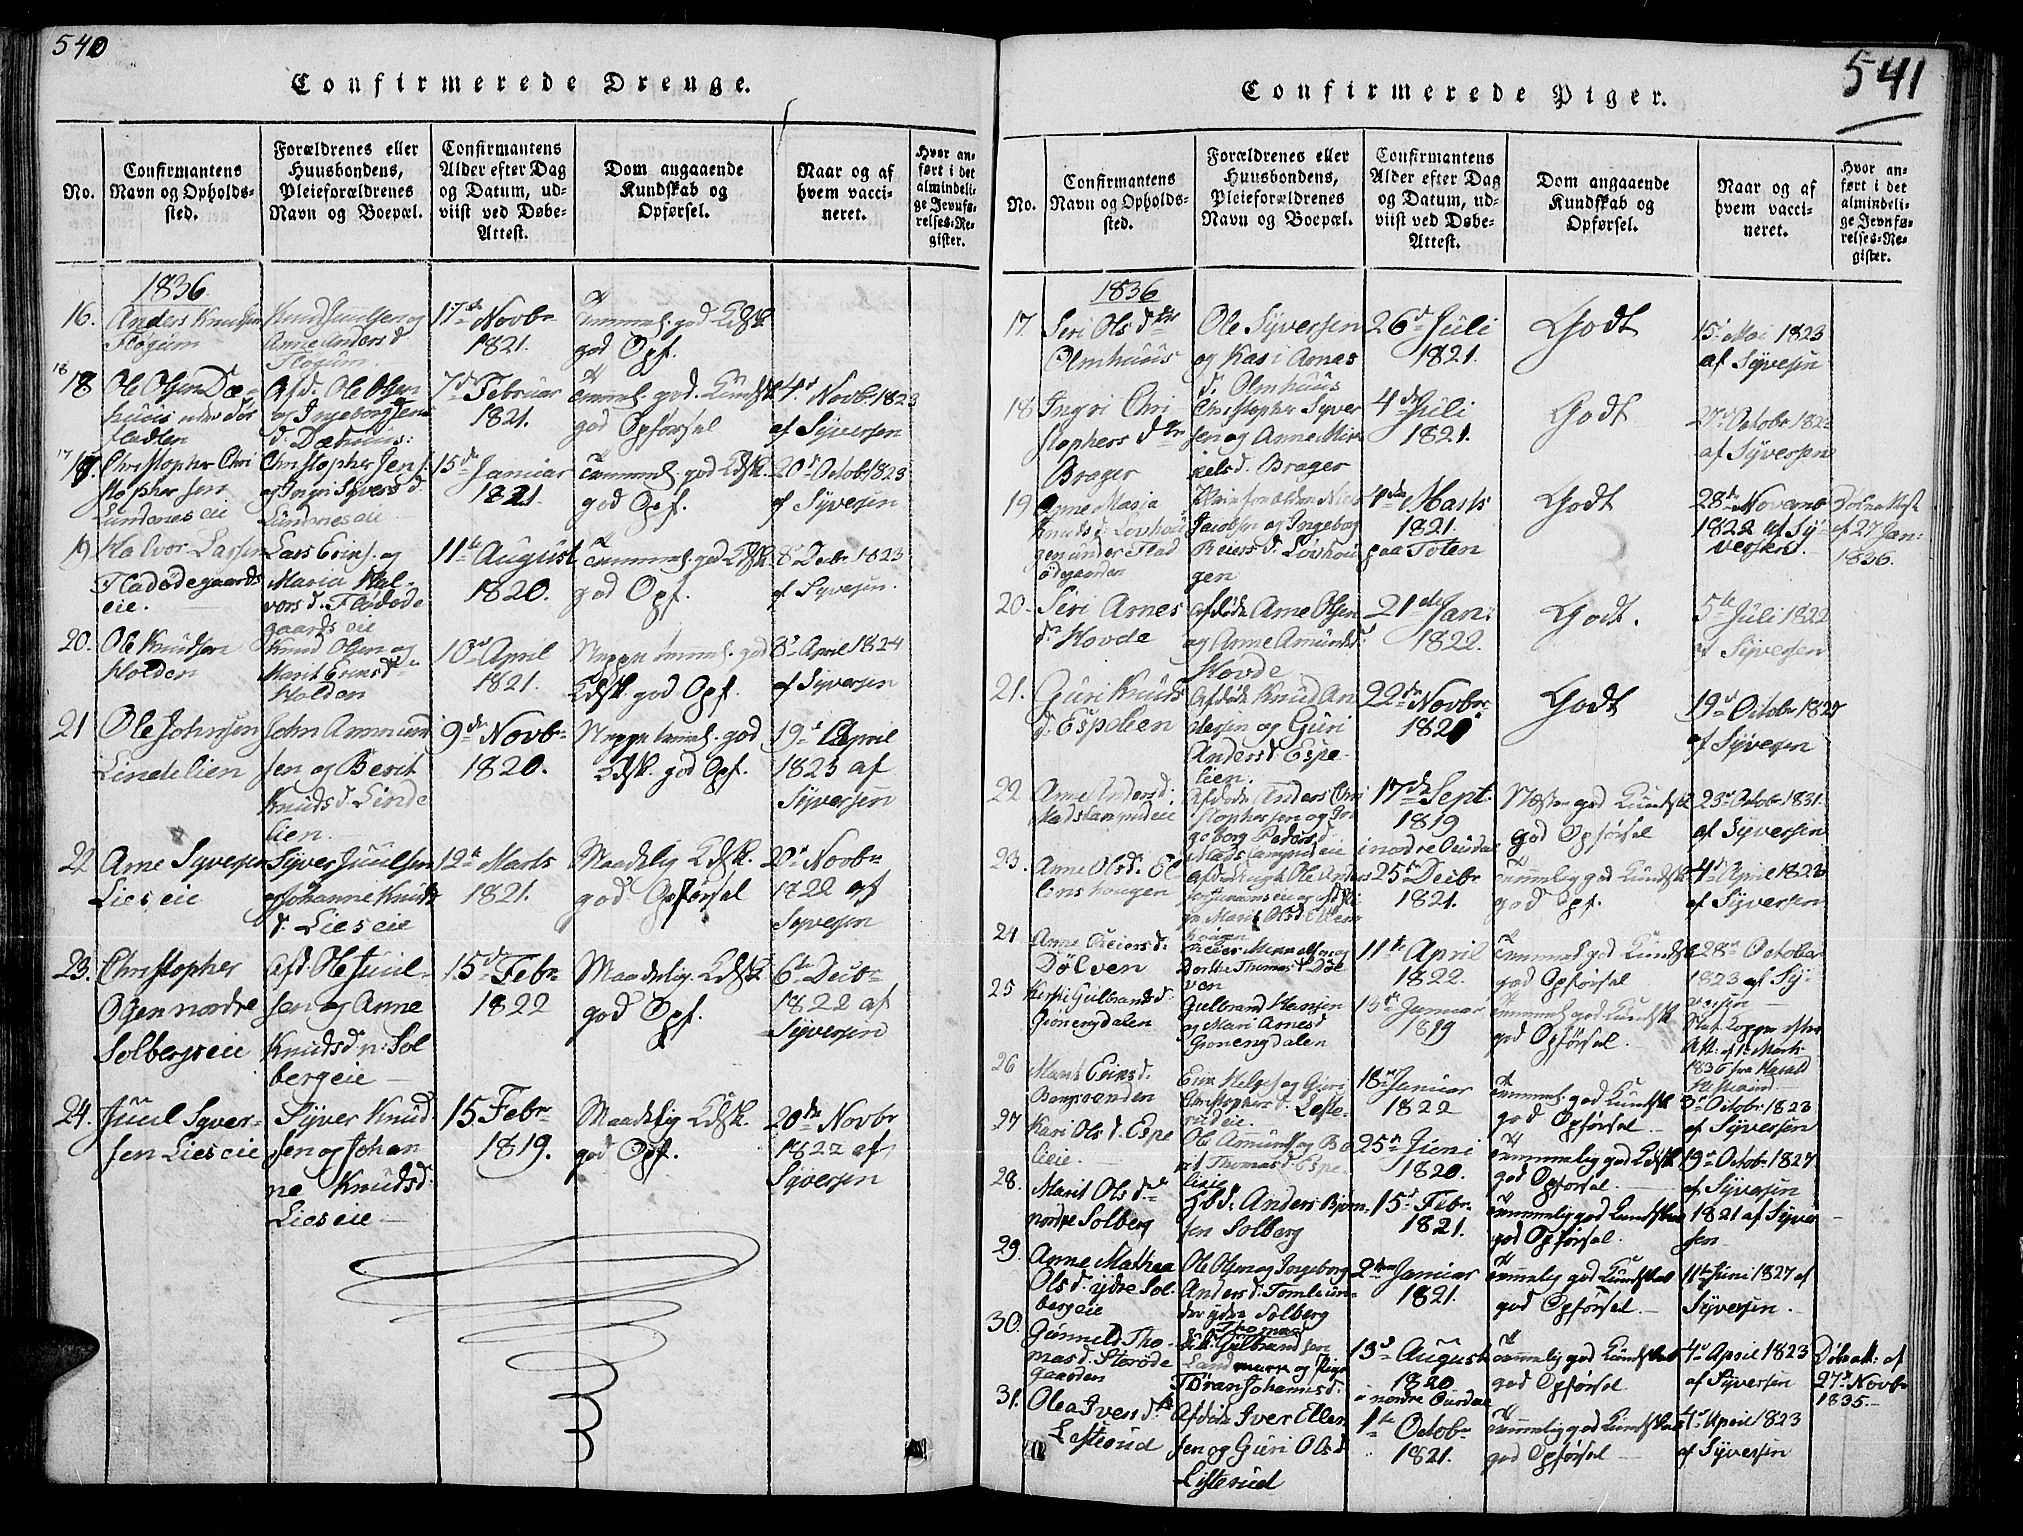 540
Confirmerede Drenge.
No.
Confirmantens
Navn og Opholds-
sted.
Forældrenes eller
Huusbondens,
Pleieforældrenes
Navn og Boepæl.
Confirmantens
Alder efter Dag
og Datum, ud-
viist ved Døbe-
Attest.
Dom angaaende
Kundskab og
Opførsel.
Naar og af
hvem vacci-
neret.
Hvor an-
ført i det
almindeli-
ge Jevnfø-
relses-Re-
gister.
1836
16.
Anders Knudsen
Fløgum
Knud Juulsen og
Anne Anders d.
Fløgum
17de Novbr
1821.
god Opf.
18
18
Ole Olsen Dæ-
huus
Afd. Ole Olsen
og Ingeborg Jens
d. Dæhuus:
7de Februar
1821.
god Opførsel
4d Novbr 1823
af Syversen
17
Christopher Chri
stophersen
Lundeneseie
Christopher Jens.
og Ingri Syvers d.
Lundeneseie
15de Januar
1821
god Opf.
20d Octobr 1823
af Syversen
19
Halvor Larsen
Fladødegaards
eie.
Lars Erins. og
Maria Hal-
vors d. Flødøde
gaards eie
11te August
1820.
god Opf.
8d Decbr 1823
af Syversen.
20.
Ole Knudsen
Holden
Knud Olsen og
Marit Erinsd.
Holden
10d April
1821.
Kdsk. god Opf.
8d April 1824
af Syversen
21
Ole Johnsen
Lindelien
John Ammund
sen og Berit
Knuds d. Linde
lien.
9de Novbr
1820.
Kdsk. god Opf.
19d April
1823 af
Syversen
22
Arne Syversen
Lieseie
Syver Juulsen
og Johanne Knuds
d. Lieseie
12te Marts
1821.
Maadelig Kdsk.
god Opførsel
20d Novbr
1822 af
Syversen
23.
Christopher
Olsen nordre
Solbergseie
Afd. Ole Juul-
sen og Anne
Knudsd n: Sol
bergeie
15de Febr
1822
Maadelig Kdsk.
god Opf.
6te Decbr
1822 af
Syversen
24.
Juul Syver-
sen Lieseie
Syver Knud
sen og Johan
ne Knudsd.
Lieseie
15 Febr
1819.
Maadelig Kdsk.
god Opf.
20de Novbr
1822 af
Syversen
541
Confirmerede Piger.
No.
Confirmantens
Navn og Opholds-
sted.
Forældrenes eller
Huusbondens,
Pleieforældrenes
Navn og Boepæl.
Confirmantens
Alder efter Dag
og Datum, ud-
viist ved Døbe-
Attest.
Dom angaaende
Kundskab og
Opførsel.
Naar og af
hvem vacci-
neret.
Hvor an-
ført i det
almindeli-
ge Jevnfø-
relses-Re-
gister.
1836
17
Siri Ols dtr
Olmhuus
Ole Syversen
og Kari Arnes
d. Olmhuus
26d Juli
1821.
Godt
15d Mai 1823
af Syversen
18
Ingri Chri
stophers dtr
Brager
Christopher Syver
sen og Anne Mir
jelsd. Brager
4de Juli
1821.
Godt
Octobr 1822
af Syversen
19
Anne Marja
Knuds d. Lovhou
gen under Flad
ødegaarden
Jacobsen og Ingeborg
Reiers d. Lovhou
gen
4de Marts
1821.
paa Toten
Godt
28de Novemb
1822 af Sy-
versen.
af 27 Jan:
1836.
20
Siri Arnes
dr Hovde
afdøde Arne Olsen
og Anne Amunds d.
Hovde
21de Jan:
1822.
Godt.
5te Juli 1822
af Syversen
21.
Guri Knuds
d. Espelien
Afdøde Knud An
dersen og Guri
Anders d. Espe-
lien.
22de Novbr
1820
Godt
19d Octobr
af Syversen
22
Anne Anders d.
Afdøde Anders Chri
stophersen og In
geborg Peders d.
17de Sept.
1819
i nordre Ourdal
Næsten god Kundsk
god Opførsel
23d Octobr 1831
af Syversen
23.
Anne Olsd. El
lenshougen
25de Decbr
1821.
god Opf.
4d April 1823
af Syversen
24
Anne Reiers d.
Dölven
Dorthe Thomas d. Döl
ven
11te April
1822.
god Opførsel
28de October
1823 af Sy-
versen
25
Kirsti Gulbrands d.
Grönengdalen
Gulbrand Hansen
og Mari Arnes d
Grönengdalen
Januar
1819
god Opførsel.
1836 fra Herred
26
Marit Erins d.
Erin Helges og Guri
Christophers d.
18de Januar
1822
god Opførsel.
3d Octobr 1823
af Syversen
27
Kari Ols d. Espe
lieie
Ole Amunds og Be
rit Thomas d. Espe-
lieie
25de Juni
1820.
god Opførsel.
19d Octobr 1827
af Syversen
28.
Marit Ols d.
nordre Solberg
Anders Bjørn-
sen Solberg
15d Febr.
1821.
god Opførsel.
1821 af Syver
sen
29.
Anne Mathea
Ols d. ydre Sol-
bergeie
Ole Olsen og Ingeborg
Anders d. Tomle un-
der ydre Solberg
2den Januar
1821.
god Opførsel.
11te Juni 1827 af
Syversen.
30.
Gunnild Tho-
mas d. Storøde
gaarden
Thomas
Gulbrandsen
Tøran Johannesd.
13d August
1820
i nordre Ourdal
god Opførsel
4d April 1823
af Syversen
Döbeatt: af
27d Novbr
1835.
31.
Olea Ivers d.
Listerud
Afdøde Iver Ellen
sen og Guri Ols d
Listerud
1te Octobr
1821.
god Opførsel
4d April 1823
af Syversen